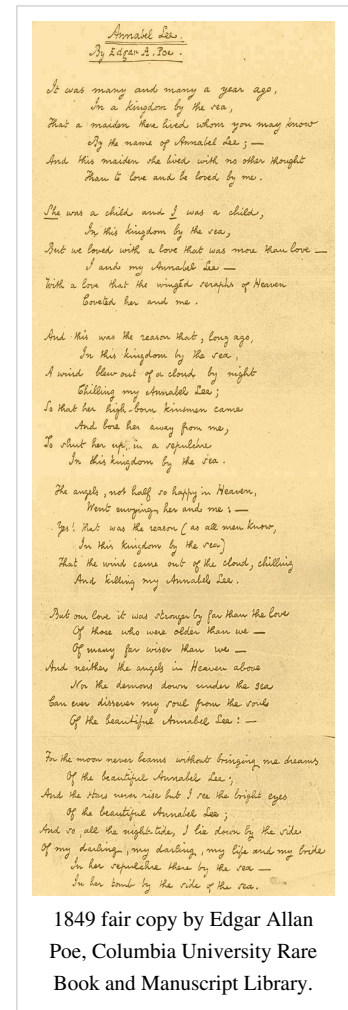 Annabel Lee.
By Edgar A. Poe.
It was many and many a year ago,
In a kingdom by the sea,
That a maiden there lived whom you may know
By the name of Annabel Lee; —
And this maiden she lived with no other thought
Than to love and be loved by me.
She was a child and I was a child,
In this kingdom by the sea,
But we loved with a love that was more than love —
I and my Annabel Lee —
With a love that the wingéd seraphs of Heaven
Coveted her and me.
And this was the reason that, long ago,
In this kingdom by the sea,
A wind blew out of a cloud by night
Chilling my Annabel Lee;
So that her high-born kinsmen came
And bore her away from me,
To shut her up, in a sepulchre
In this kingdom by the sea.
The angels, not half so happy in Heaven,
Went envying her and me: —
Yes! that was the reason (as all men know,
In this kingdom by the sea)
That the wind came out of the cloud, chilling
And killing my Annabel Lee.
But our love it was stronger by far than the love
Of those who were older than we —
Of many far wiser than we —
And neither the angels in Heaven above
Nor the demons down under the sea
Can ever dissever my soul from the soul
Of the beautiful Annabel Lee: —
For the moon never beams without bringing me dreams
Of the beautiful Annabel Lee;
And the stars never rise but I see the bright eyes
Of the beautiful Annabel Lee;
And so, all the night-tide, I lie down by the side
Of my darling, my darling, my life and my bride
In her sepulchre there by the sea —
In her tomb by the side of the sea.
1849 fair copy by Edgar Allan
Poe, Columbia University Rare
Book and Manuscript Library.